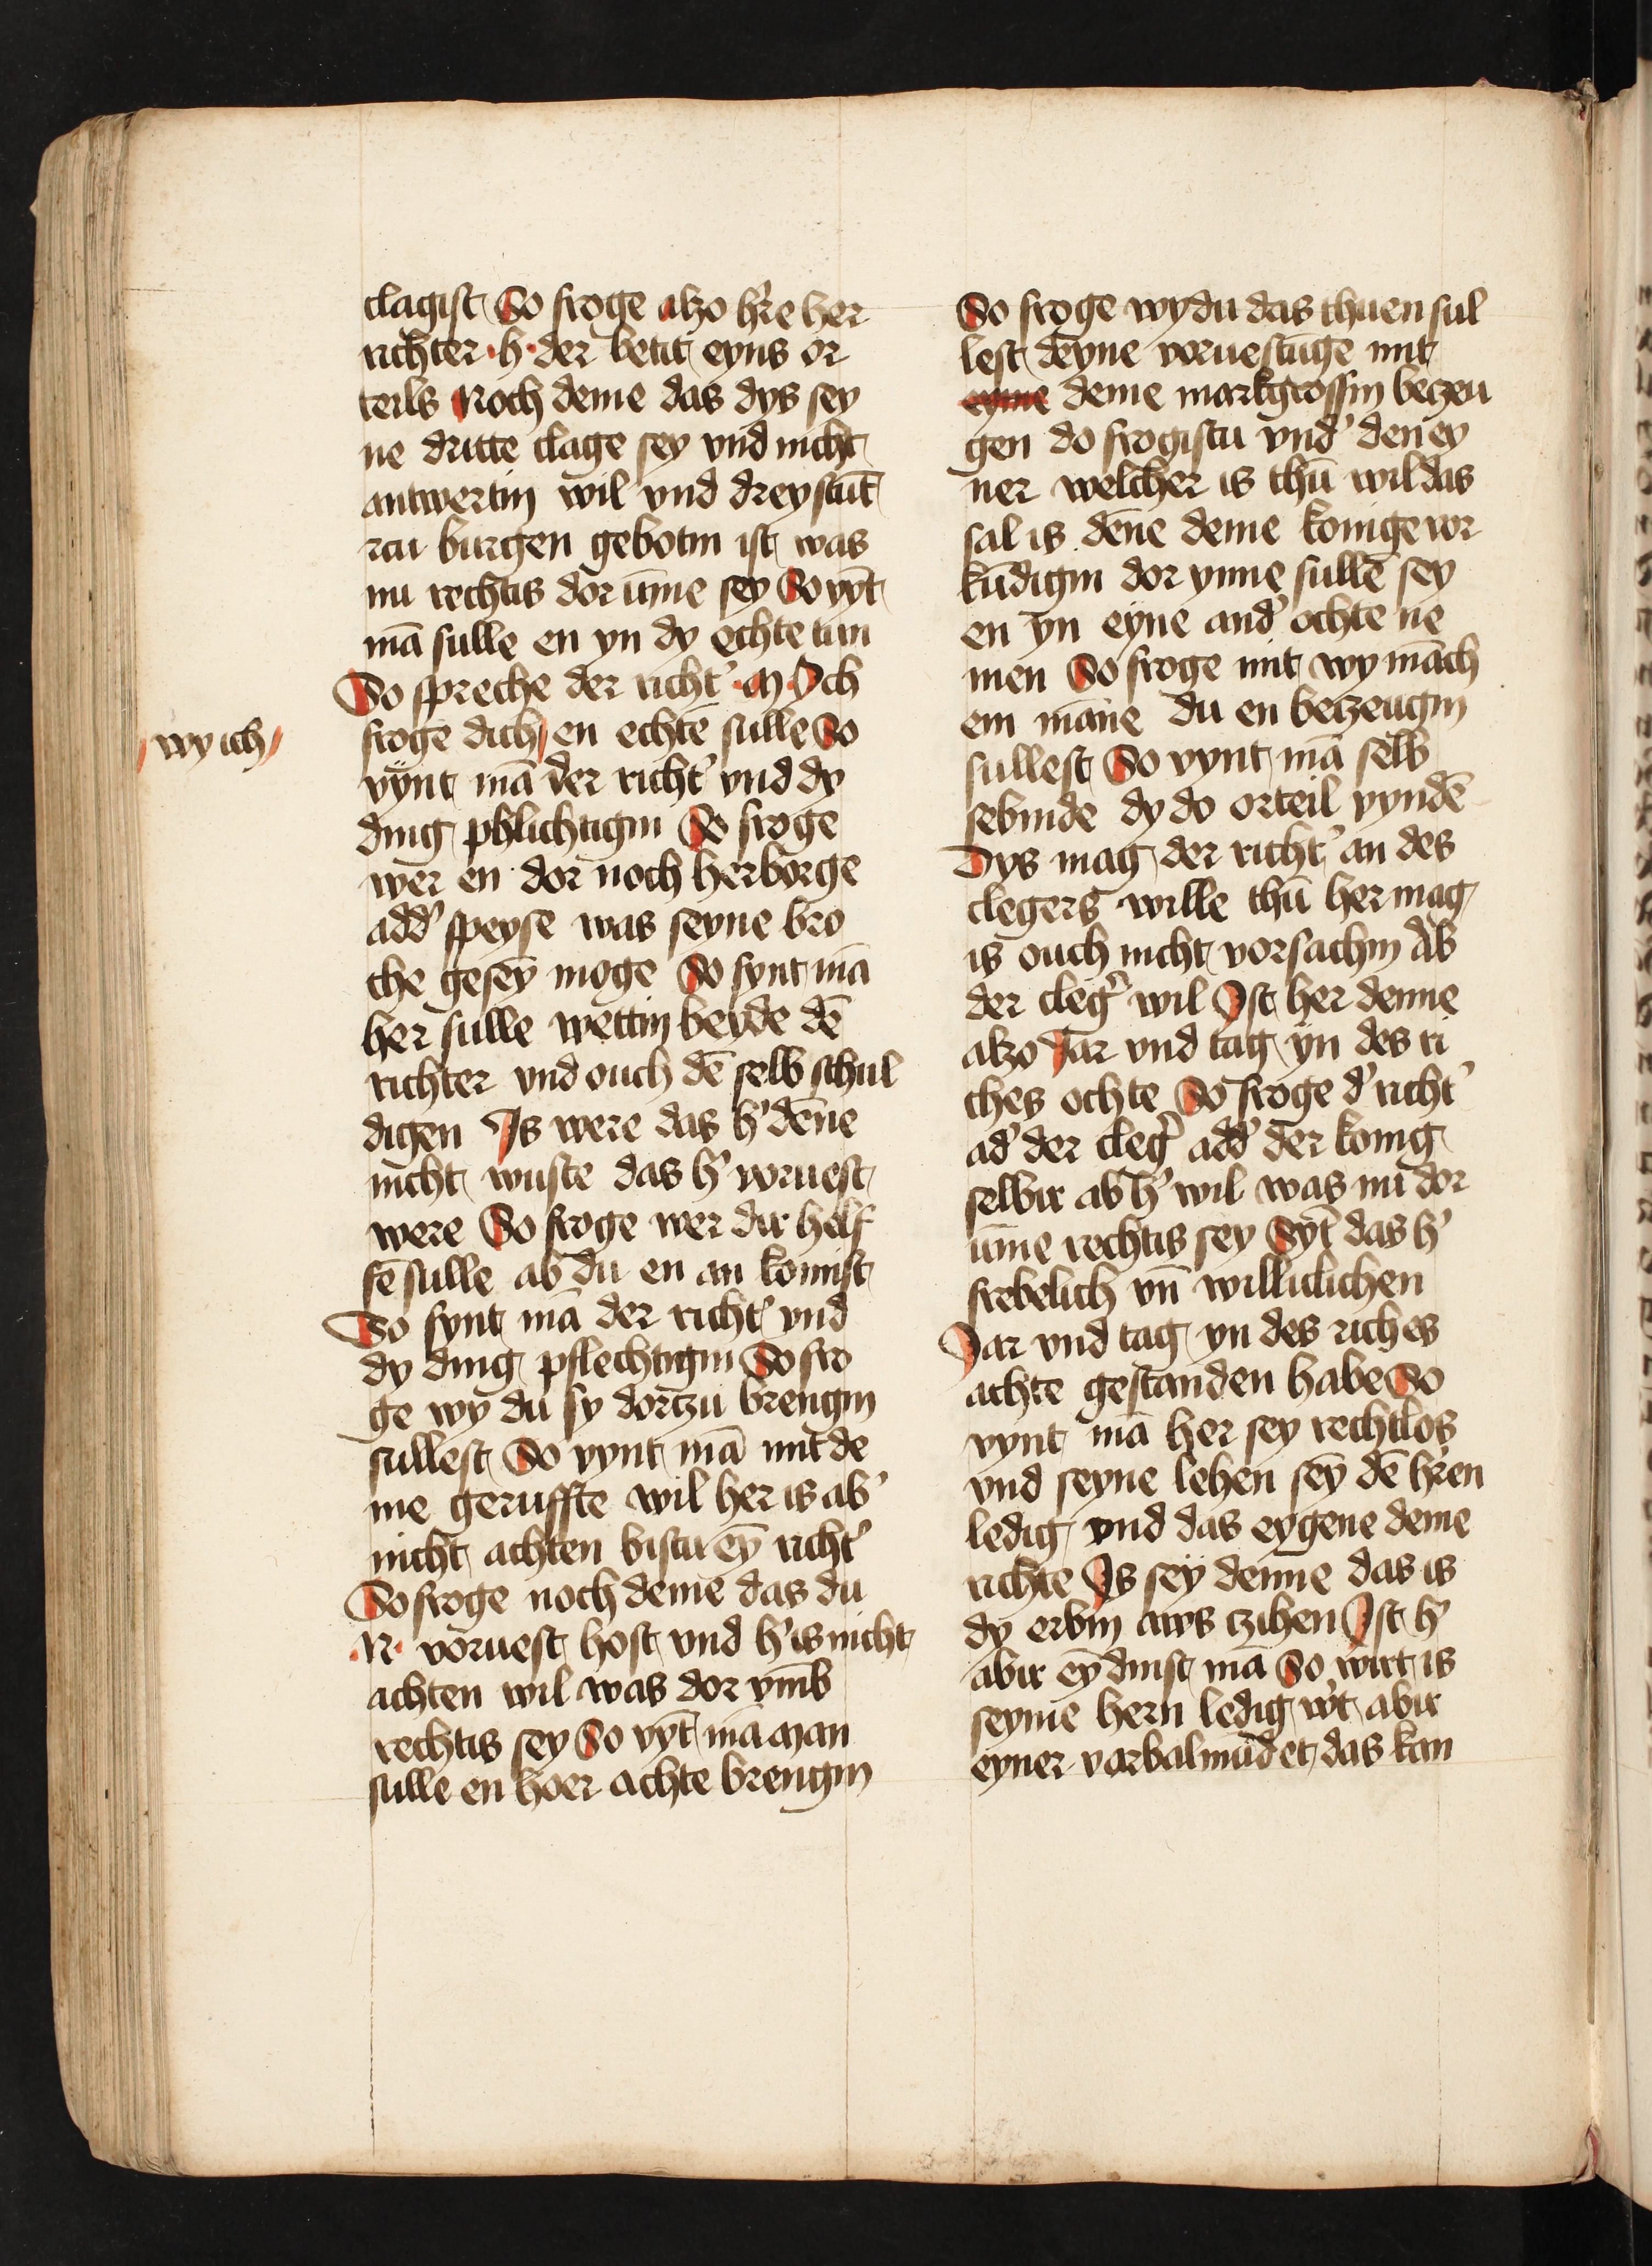 clagist So froge alzo h're her
richter · h · der betit eyns or
teils Noch deme das dys sey
ne dritte clage sey vnd nicht
antwertin wil vnd dreystūt
rcu burgen gebotin ist was
nu rechtis dor ūme sey So vyt
mā sulle en yn dy echte tun
So spreche der richt' · N · Ich
froge dich en echtē sulle So
wy ich
vynt mā der richt' vnd dy
ding phlichtigin So froge
wer en dor noch herborge
add' speyse was seyne bro
che gesey moge So fynt mā
her sulle wettin beyde dē
richter vnd ouch dē selb schul
digen Is were das h' dēne
nicht wuste das h' voruest
were So froge wer dir helf
fē sulle ab du en an komist
So fynt mā der richt' vnd
dy ding pflechtigin So fro
ge wy du sy dortzu brengin
sullest So vynt mā mit de
me geruffte wil her is ab'
nicht achten bistu ey richt'
So froge noch deme das du
· N · voruest host vnd h' is nicht
achten wil was dor vmb
rechtis sey So vyt mā man
sulle en hoer achte brengin
So froge wy du das thuen sul
lest deyne voruestūge mit
eyme deme markgroffin bezeu
gen do frogistu vnd' den ey
ner welcher is thū wil das
sal is dēne deme konige vor
kūdigin dor ynne sullē sey
en yn eyne and' ochte ne
men So froge mit wy māch
em māne du en betzeugin
sullest So vynt mā selb
sebinde dy do orteil vyndē
Dys mag der richt' an des
clegers wille thū her mag
is ouch nicht vorsachin ab
der cleg' wil Ist her denne
alzo Jar vnd tag yn des ri
ches ochte So froge d' richt'
ad' der cleg' add' der konig
selbir ab h' wil was nu dor
ūme rechtis sey Syt das h'
frebelich vn̄ williclichen
Jar vnd tag yn des riches
achte gestanden habe So
vynt mā her sey rechtlos
vnd seyne lehen sey dē h'ren
ledig vnd das eygene deme
richte Is sey denne das is
dy erbin aws tzihen Ist h'
abir ey dinst mā So wirt is
seyme hern ledig w't abir
eyner varbalmūdet das kan